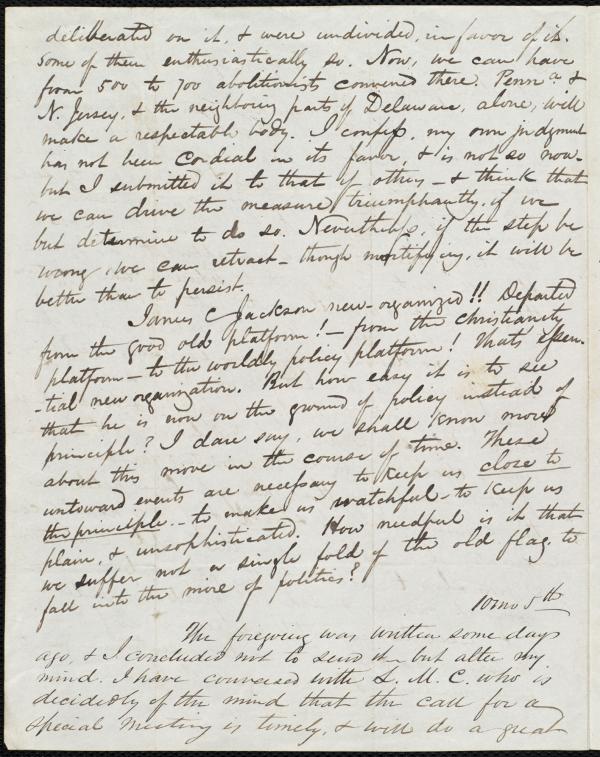 deliberated on it, & were undivided, in favor of it.
Some of them enthusiastically so. Now, we can have
from 500 to 700 abolitionists convened there. Penna. &
N. Jersey, & the neighboring parts of Delaware, alone, will
make a respectable body. I confess, my own judgment
has not been cordial in its favor, & is not so now -
but I submitted it to that of others - & think that
we can drive the measure triumphantly, if we
but determine to do so. Nevertheless, if the step be
wrong, we can retract - though mortifying, it will be
better than to persist.
James C Jackson new-organized!! Departed
from the good old platform! - from the christianity
platform - to the worldly policy platform! That's essen-
-tial new organization. But how easy it is to see
that he is now on the ground of policy instead of
principle? I dare say, we shall know more
about this move in the course of time. These
untoward events are necessary to keep us close to
the principle - to make us watchful - to keep us
plain, & unsophisticated. How needful is it that
we suffer not a single fold of the old flag to
fall into the mire of politics?
10mo 5th
The foregoing was written some days
ago, & I concluded not to send it but alter my
mind. I have conversed with L. M. C. who is
decidedly of the mind that the call for a
special meeting is timely, & will do a great